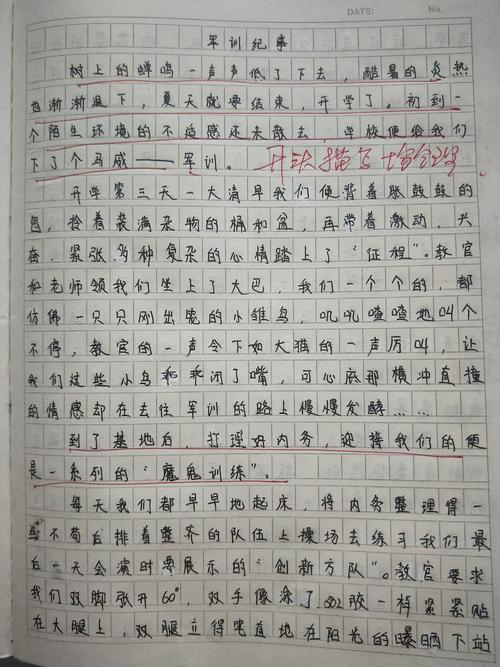 DATE: No.
军训纪事
树上的蝉鸣一声声低了下去，酷暑的炎热
也渐渐退下，夏天就要结束，开学了。初到一
个陌生环境的不适感还未散去，学校便给我们
下了个马威——军训。
开学第三天一大清早我们便背着胀鼓鼓的
包，拎着装满杂物的桶和盆，再带着激动，兴
奋，紧张多种复杂的心情踏上了“征程”。教官
和老师领我们坐上了大巴，我们一个个的，都
仿佛一只只刚出笼的小雏鸟，叽叽喳喳地叫个
不停，教官的一声令下如大猫的一声厉叫，让
我们这些小鸟乖乖闭了嘴，可心底那横冲直撞
的情感却在去往军训的路上慢慢发酵……
到了基地后，打理好内务，迎接我们的便
是一系列的“魔鬼训练”。
每天我们都早早地起床，将内务整理得一
丝不苟后排着整齐的队伍上操场去练习我们最
后一天会演时要展示的“创新方队”。教官要求
我们双脚张开60°，双手像涂了502胶一样紧紧贴
在大腿上，双腿立得笔直地在阳光的曝晒下站